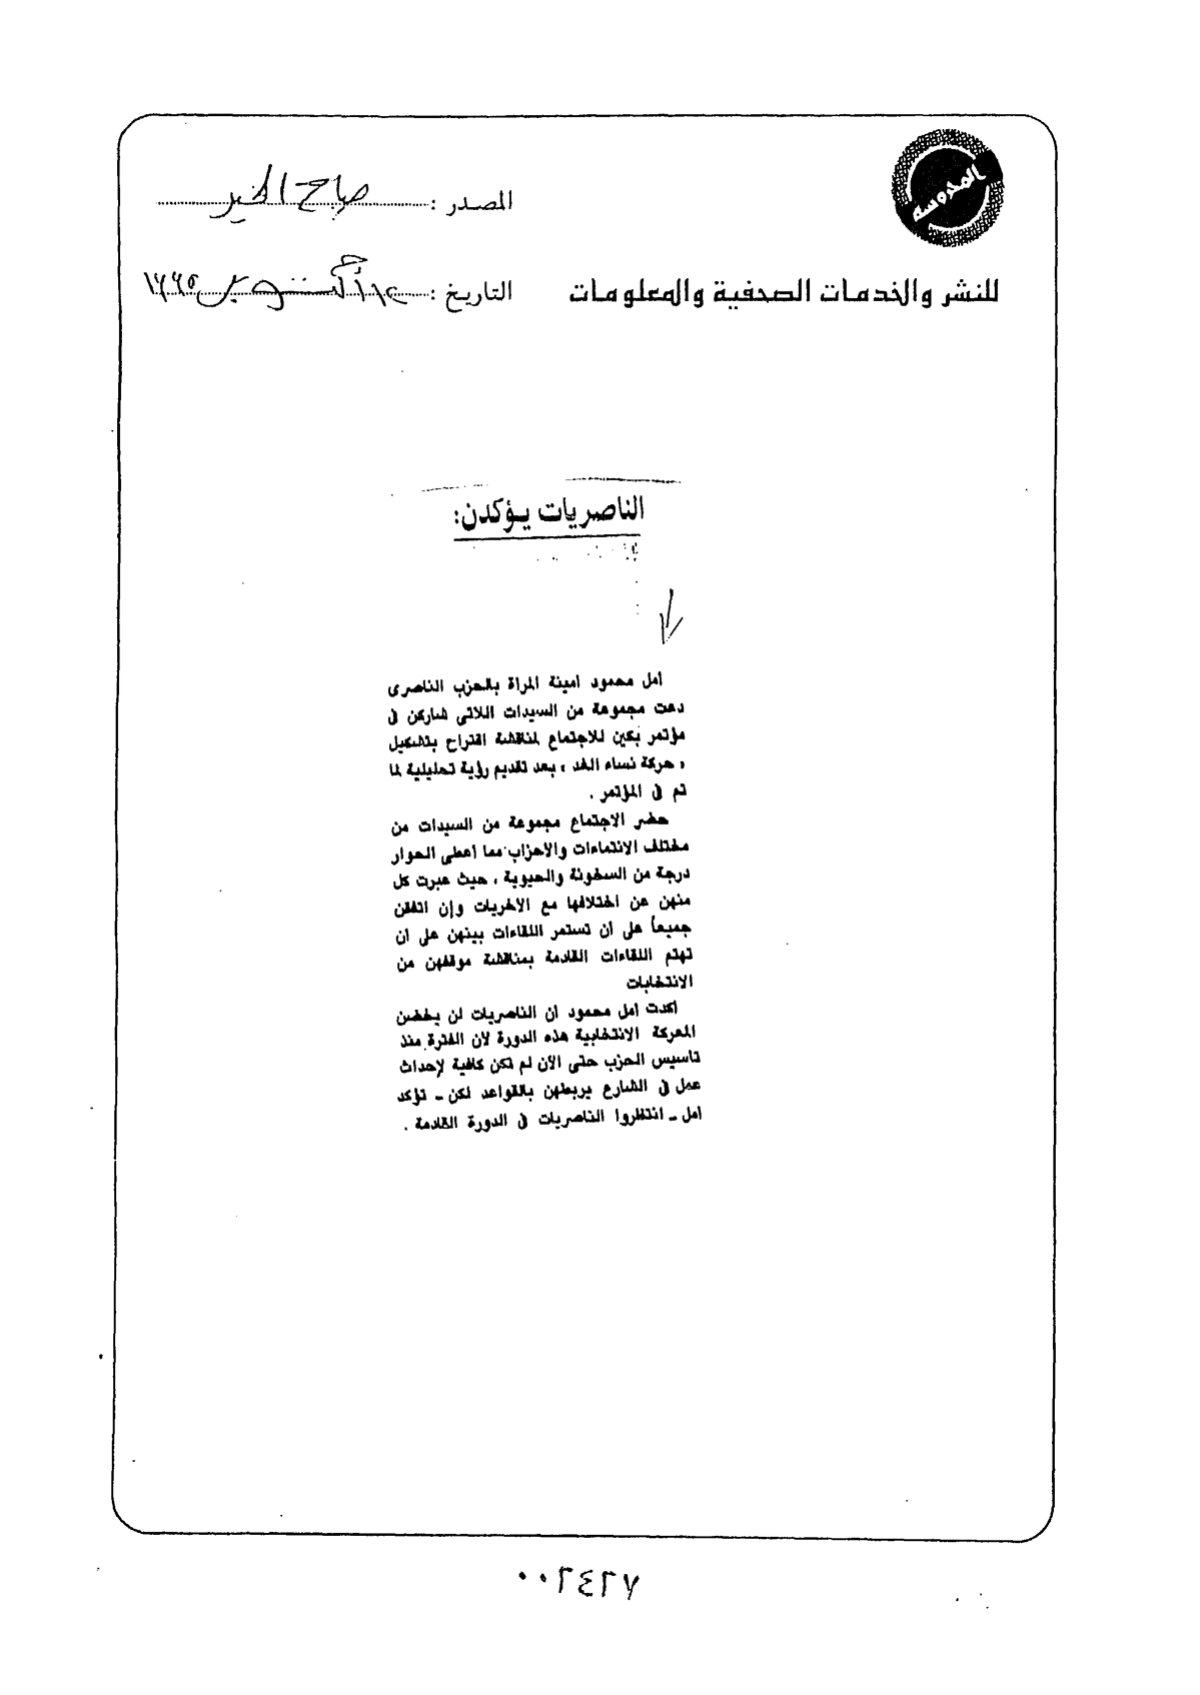 المحروسة
المصدر : صباح الخير
للنشر والخدمات الصحفية والمعلومات
التاريخ : ١٢ أكتوبر ١٩٩٥
الناصريات يؤكدن:
أمل محمود أمينة المرأة بالحزب الناصرى
دعت مجموعة من السيدات اللاتى شاركن فى
مؤتمر بكين للاجتماع لمناقشة اقتراح بتشكيل
« حركة نساء الغد » بعد تقديم رؤية تحليلية لما
تم فى المؤتمر .
حضر الاجتماع مجموعة من السيدات من
مختلف الانتماءات والاحزاب مما أعطى الحوار
درجة من السخونة والحيوية ، حيث عبرت كل
منهن عن اختلافها مع الاخريات وإن اتفقن
جميعاً على أن تستمر اللقاءات بينهن على ان
تهتم اللقاءات القادمة بمناقشة موقفهن من
الانتخابات
أكدت أمل محمود أن الناصريات لن يخضن
المعركة الانتخابية هذه الدورة لأن الفترة منذ
تاسيس الحزب حتى الآن لم تكن كافية لإحداث
عمل فى الشارع يربطهن بالقواعد لكن ـ تؤكد
امل ـ انتظروا الناصريات فى الدورة القادمة .
٠٠٢٤٢٧